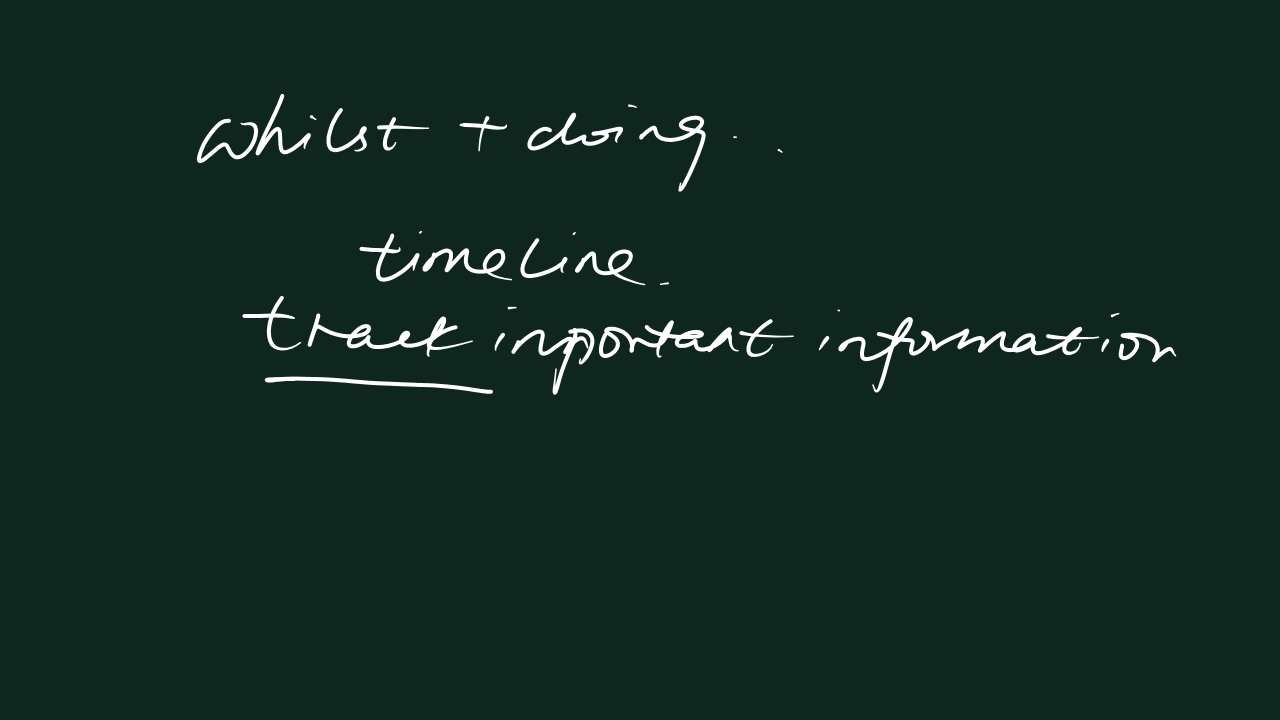 whilst + doing..
timeline.
track inportant information